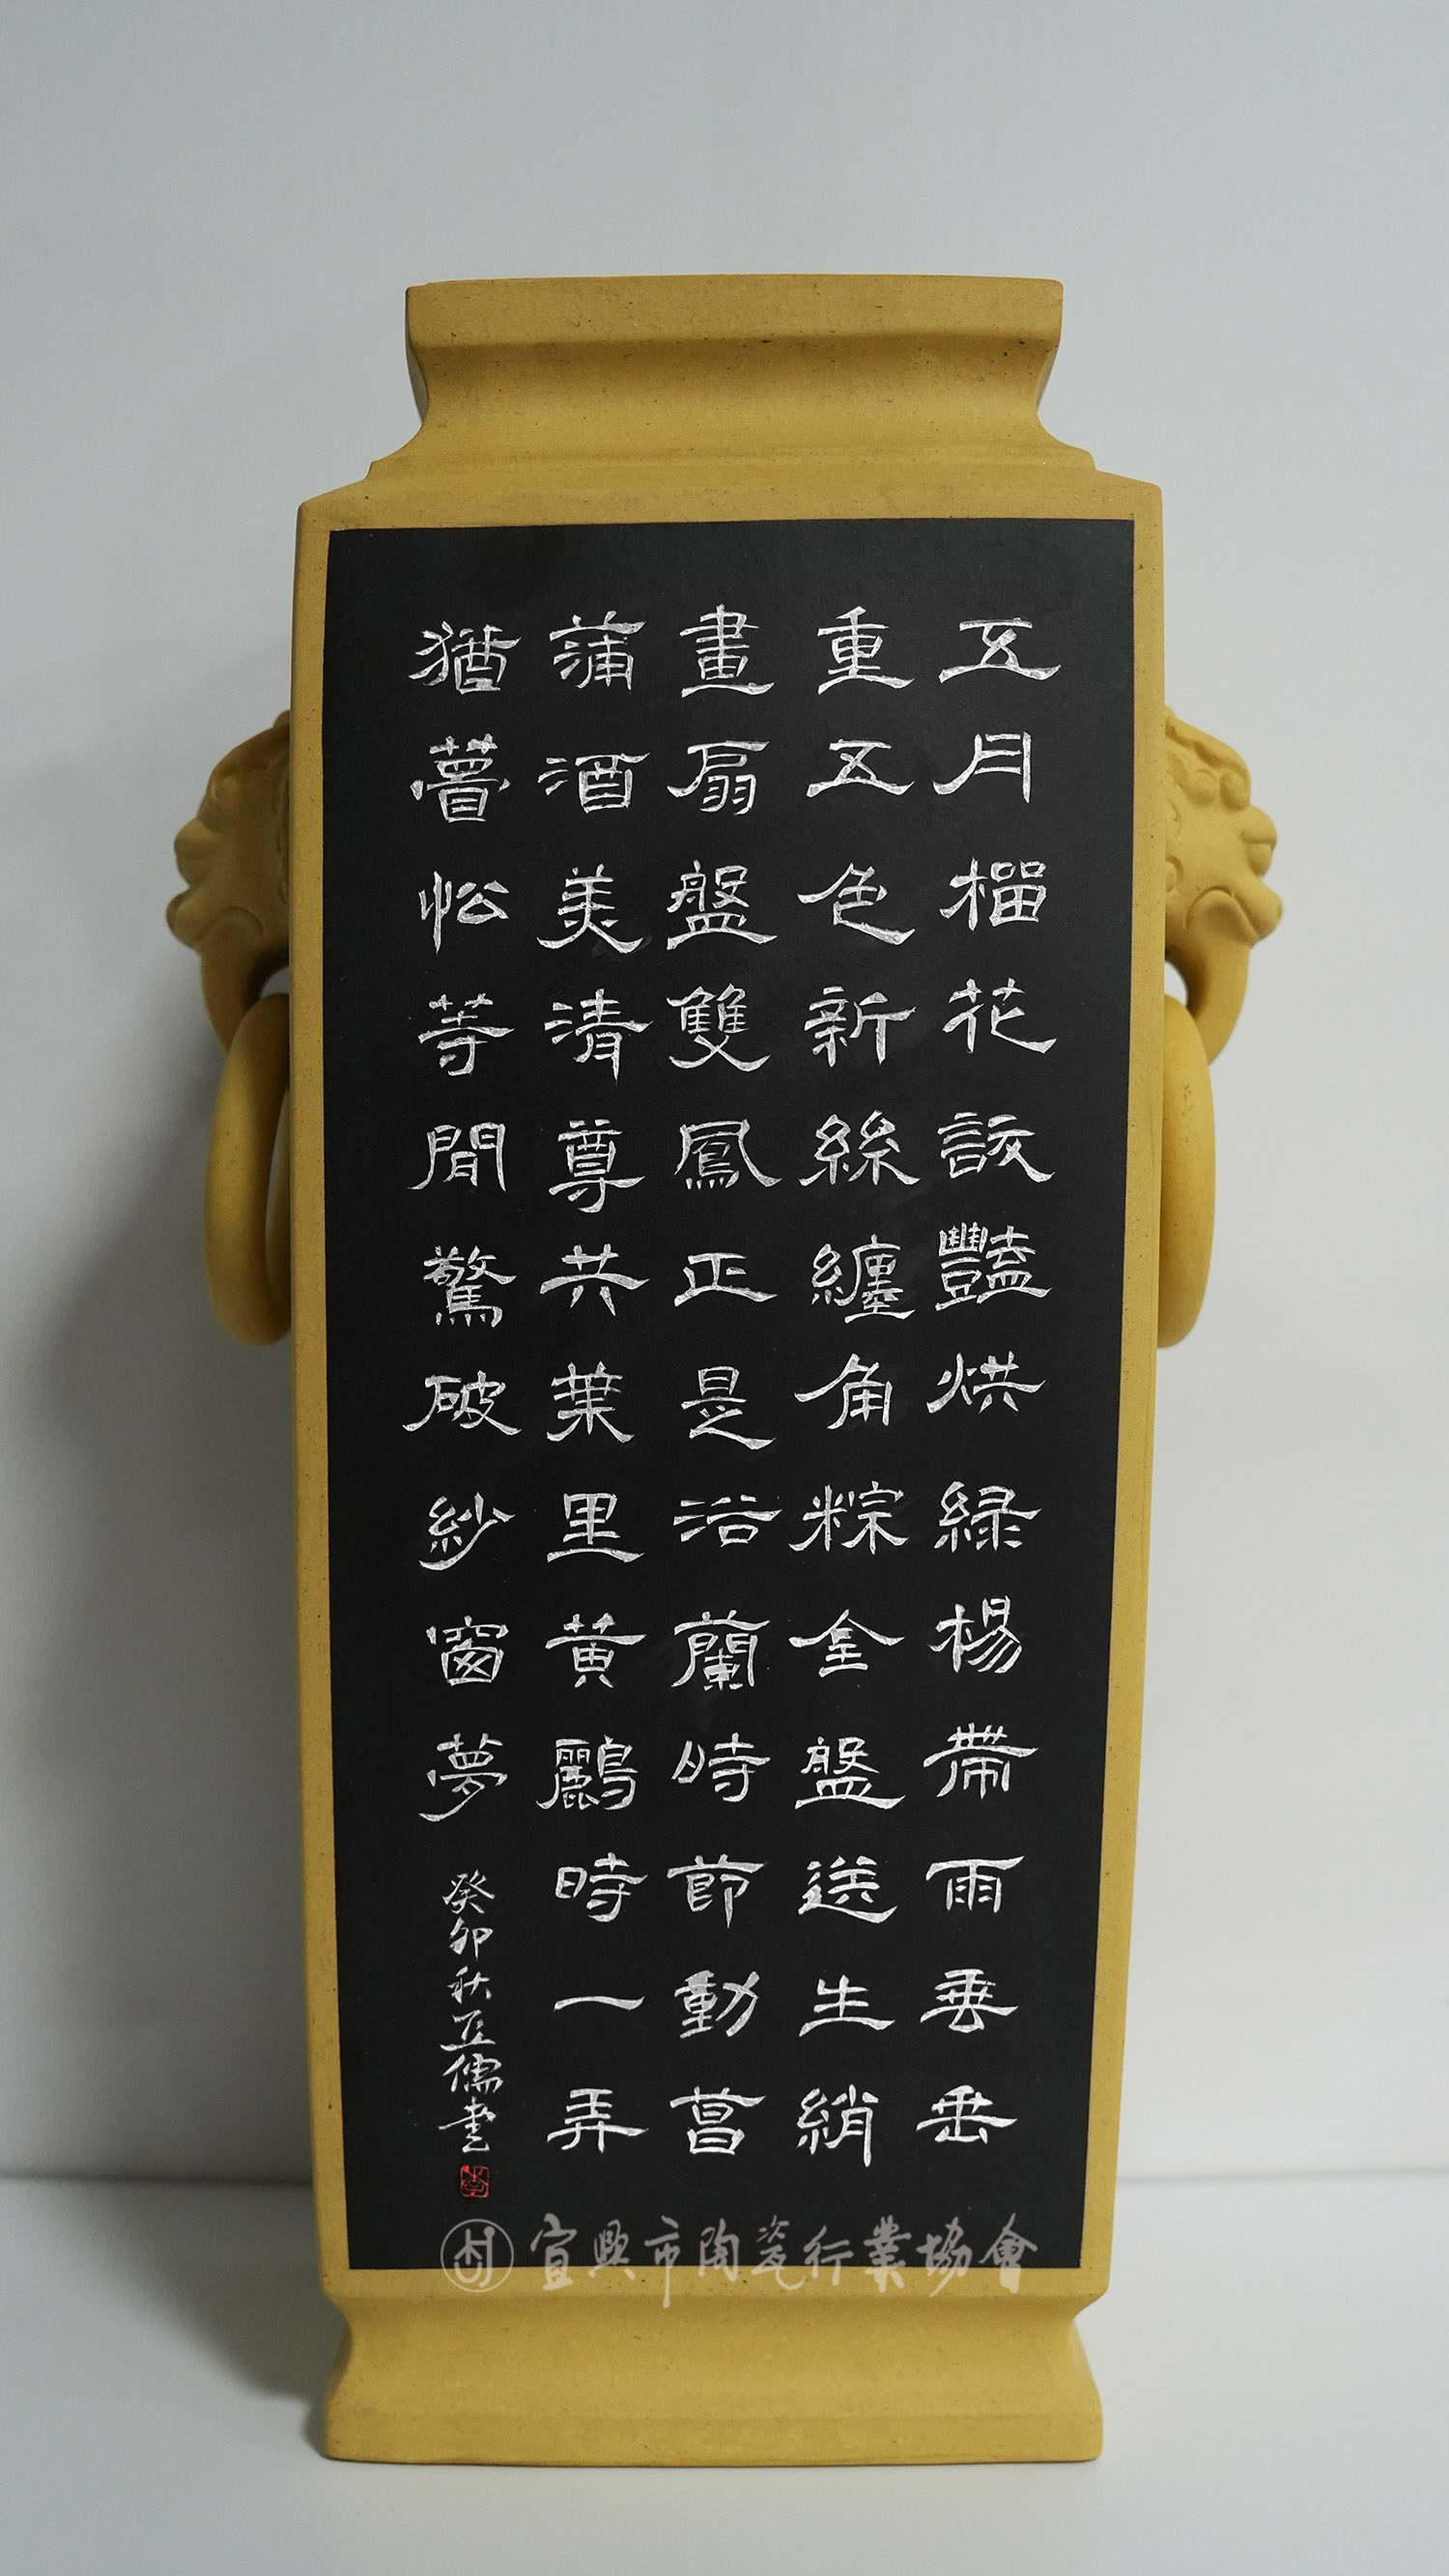 五月榴花諺豔烘綠楊帶雨垂垂
重五色新絲纏角粽金盤送生綃
畫扇盤雙鳳正是浴蘭時節動菖
蒲酒美清尊共葉里黃鸝時一弄
猶瞢忪等閒驚破紗窗夢
癸卯秋亞儒書
宜興市陶瓷行業協會